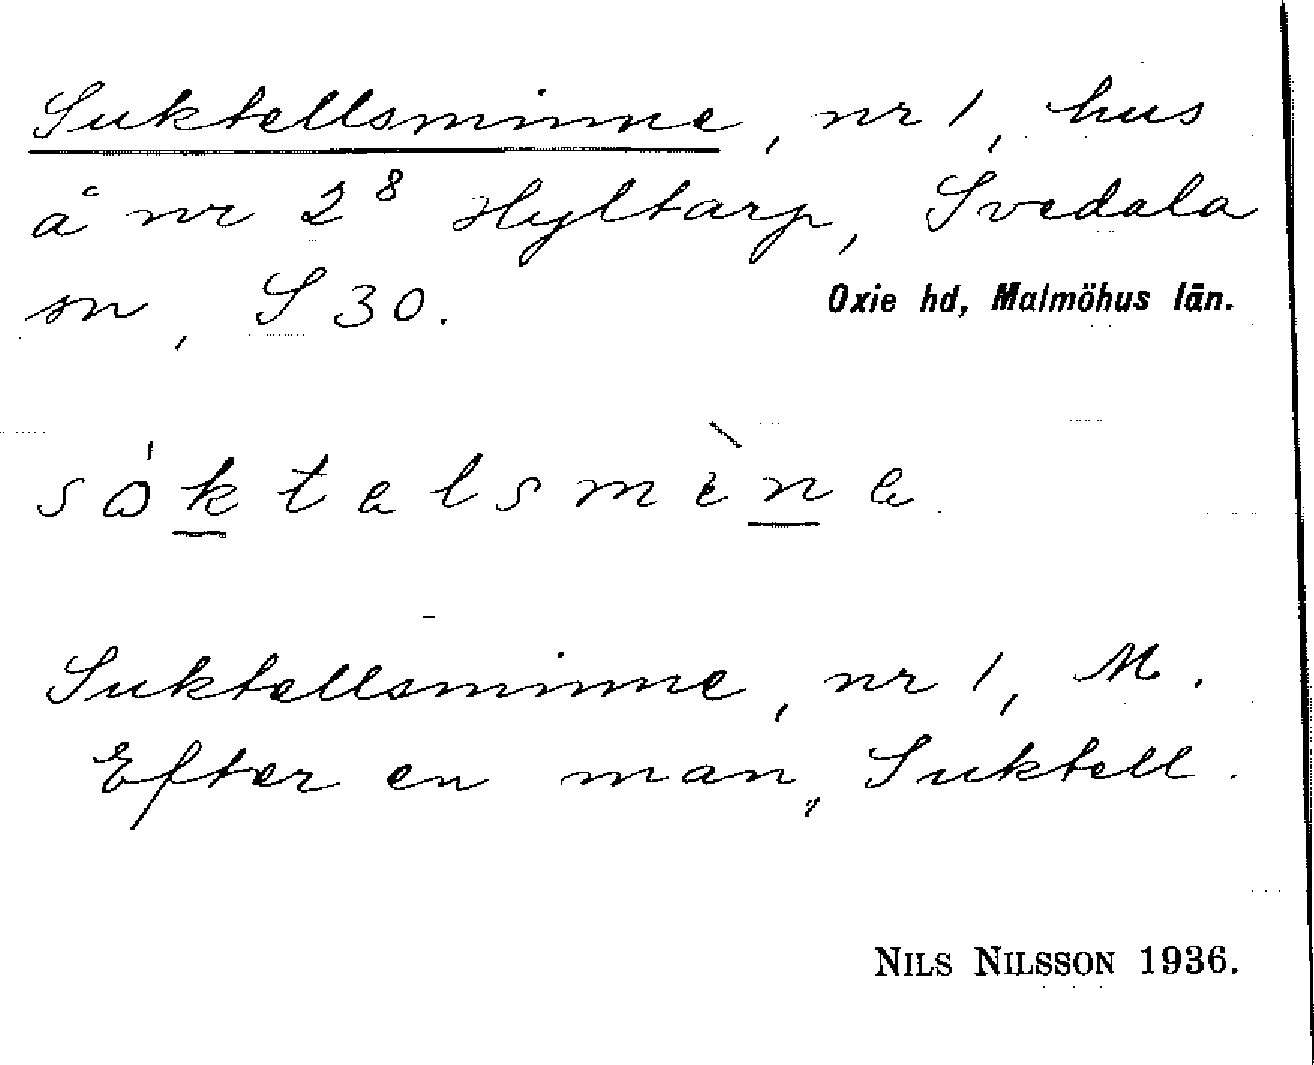 Suktellsminne, nr 1, hus
å nr 2⁸ Hyltarp, Svedala
sn, S 30. Oxie hd, Malmöhus län.
såktelsmìne
Suktellsminne, nr 1, M.
Efter en man, Suktell.
NILS NILSSON 1936.